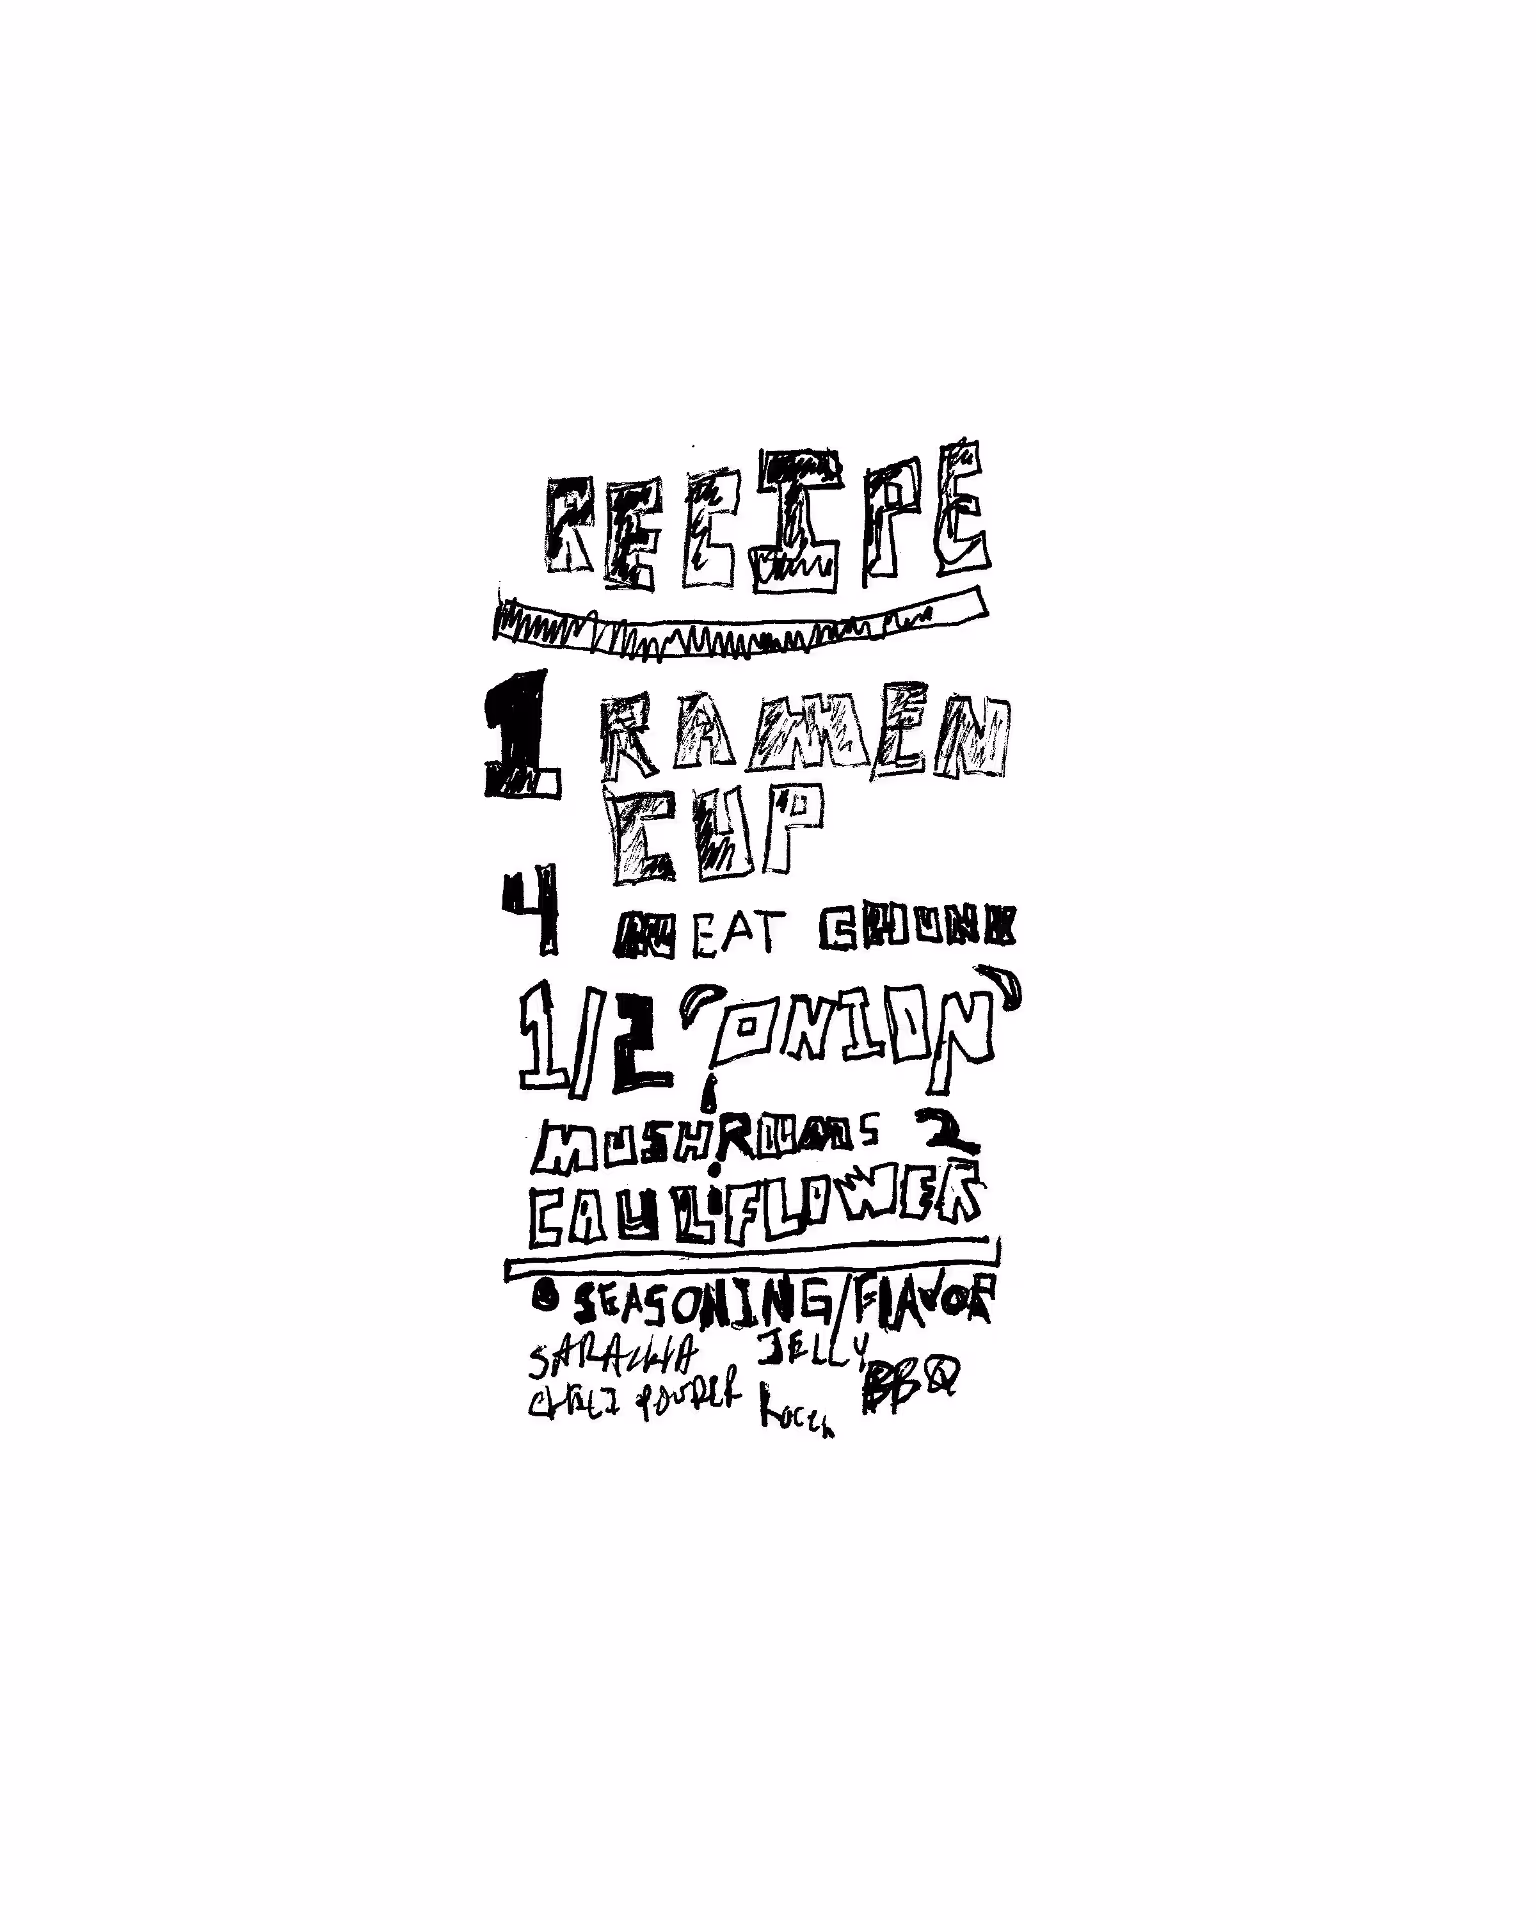 RECIPE
1 RAMEN
CUP
4 MEAT CHUNK
1/2 "ONION"
MUSHROOMS 2
CAULIFLOWER
SEASONING/FLAVOR
JELLY
CHILI POWDER BBQ